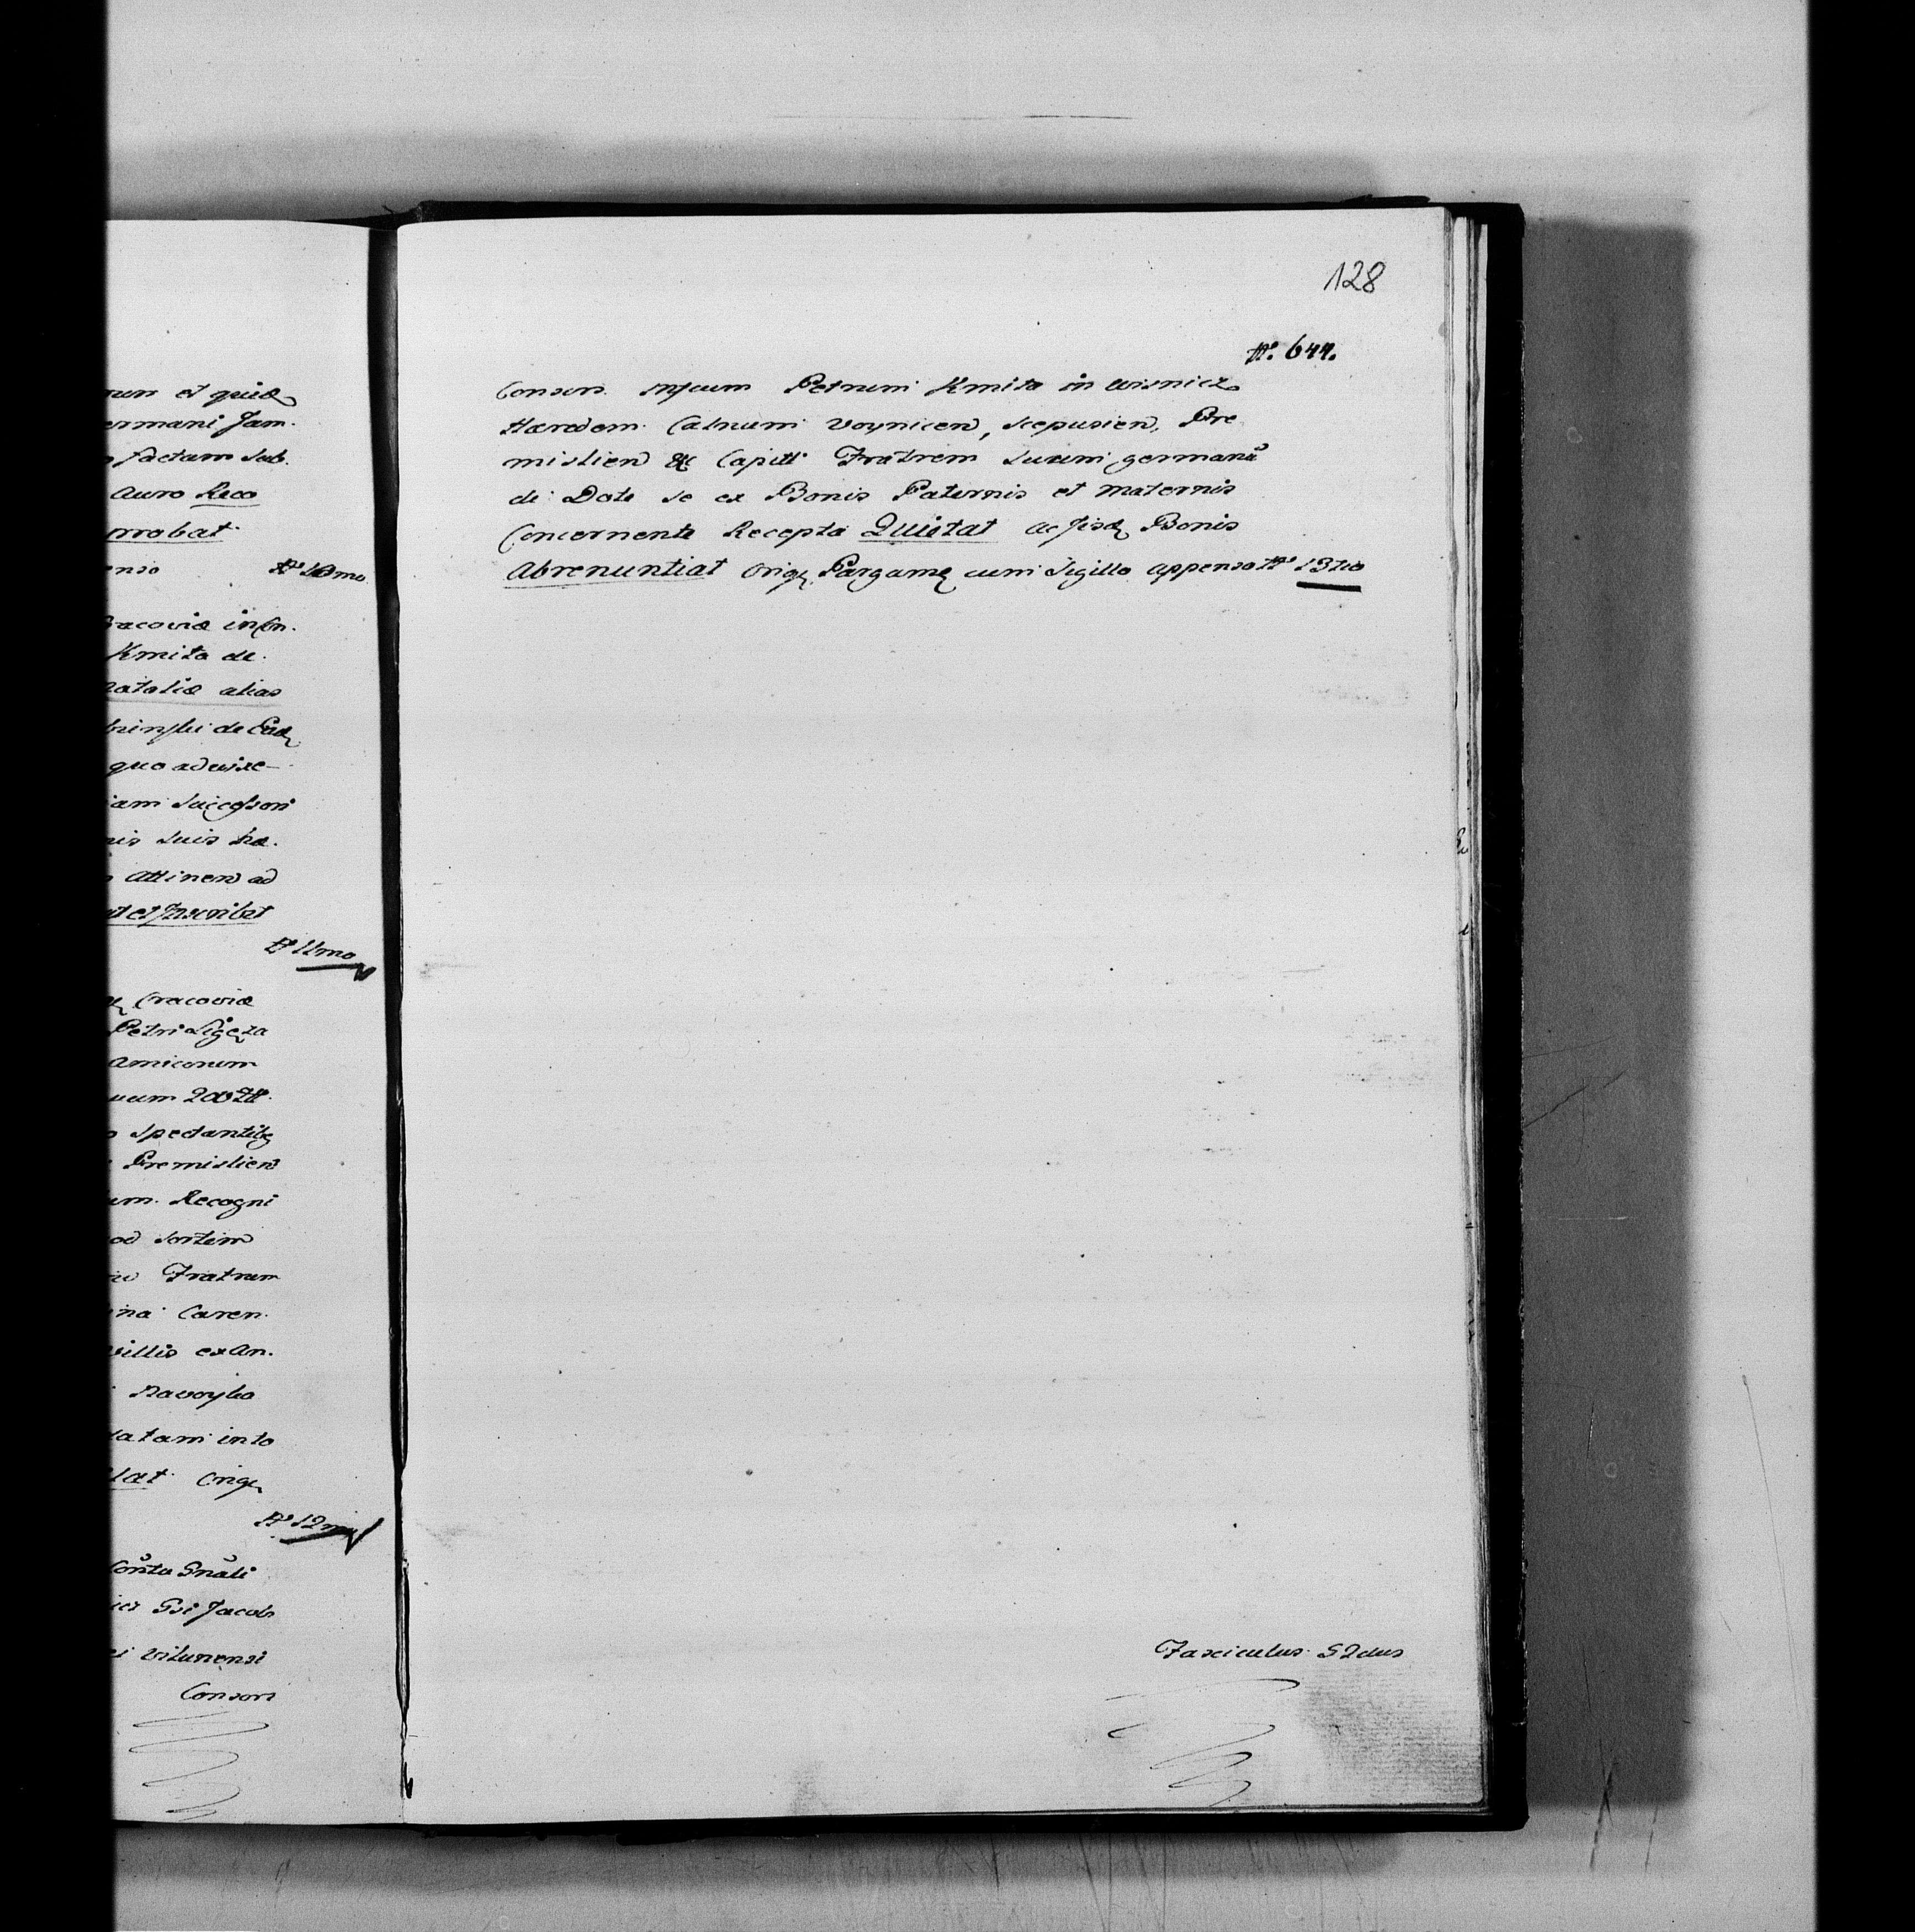 num et quid
ermani Jam.
factam Sub.
Auro Reco
probat
enso No 10mo
Cracoviæ in Con.
Kmita de
Nataliæ alias
de Ead
quo advixe-
iam Successori
nis Suis hæ.
Attinen ad
at et Inscribat
No 11mo
Cracoviæ
Petri Ligęza
Amicorum
uum 200
Spectantibq
Premislien
um. Recogni
od Sortem
Fratrum
ina Caren.
villis ex An.
Navoyka
datam in to
Orig
No 12mo
Coñta Gnãli
Jacob
ei Vilunensi
Consors
128
No. 644.
Consors Mfcum Petrum Kmita in Wisnicz
Hæredem. Catnum Voynicen, Scepusien, Pre
mislien &c Capitt Fratrem Suum germanũ
de Dote de ex Bonis Paternis et Maternis
Concernente Recepta Quietat ac Jisd Bonis
Abrenuntiat Orig, Pargame cum Sigillo appenso No 13tio
Fasciculus 52dus